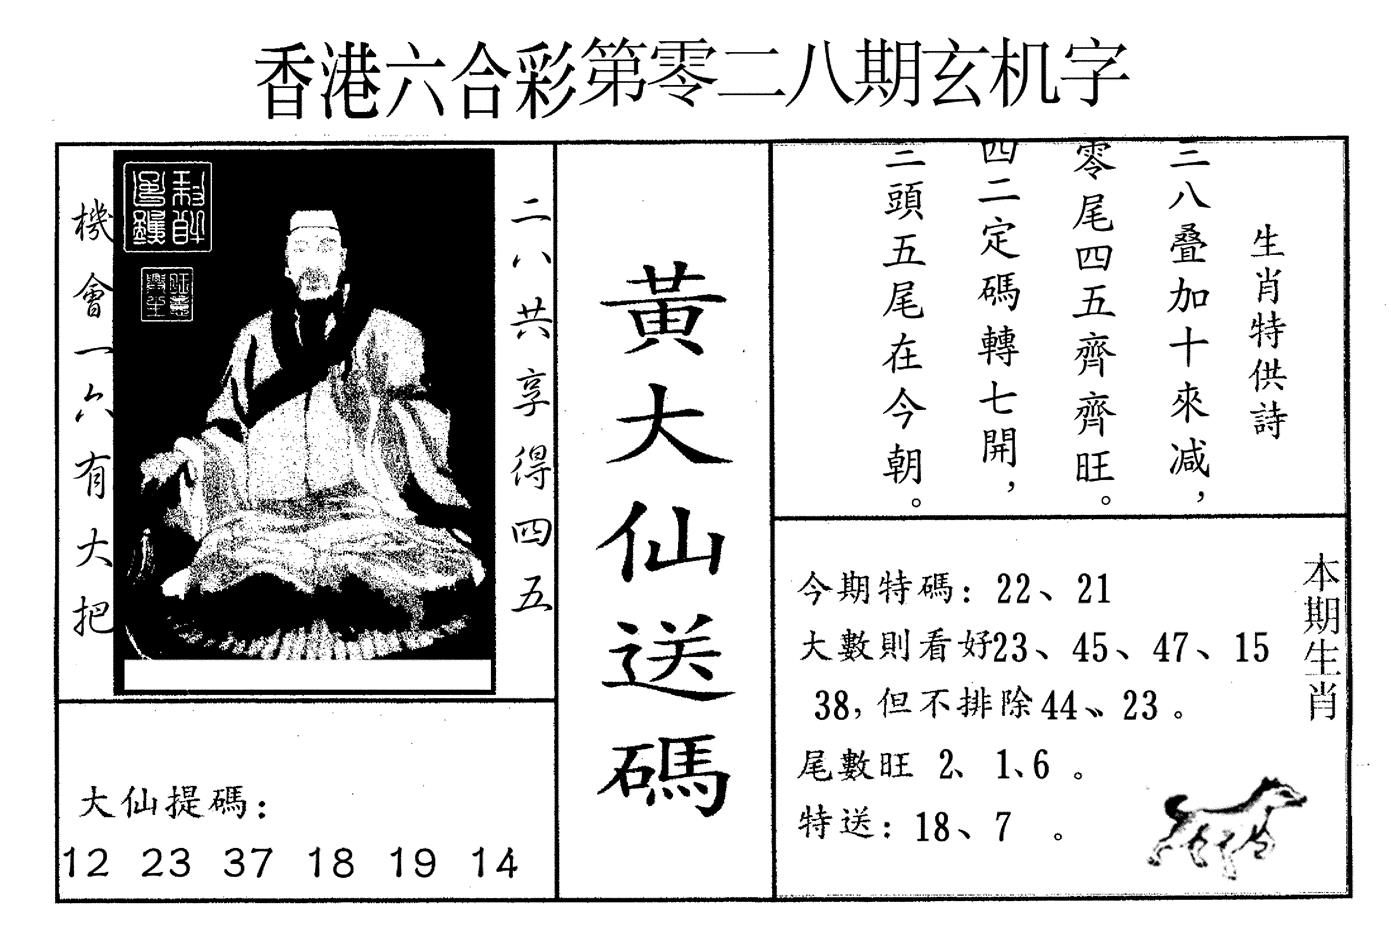 香港六合彩第零二八期玄机字
二八共享得四五
機會一六有大把
黃大仙送碼
生肖特供詩
三八叠加十來减，
零尾四五齊齊旺。
四二定碼轉七開，
三頭五尾在今朝。
今期特碼：22、21
大數則看好23、45、47、15
38，但不排除44、23。
尾數旺 2、1、6。
特送：18、7 。
本期生肖
大仙提碼：
12 23 37 18 19 14